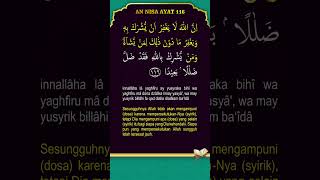 AN NISA AYAT 116
اِنَّ اللّٰهَ لَا يَغْفِرُ اَنْ يُّشْرَكَ بِهٖ
وَيَغْفِرُ مَا دُوْنَ ذٰلِكَ لِمَنْ يَّشَاۤءُ
وَمَنْ يُّشْرِكْ بِاللّٰهِ فَقَدْ ضَلَّ
ضَلٰلًا ۢ بَعِيْدًا ﴿١١٦﴾
innallāha lā yaghfiru ay yusyraka bihī wa
yaghfiru mā dūna żālika limay yasyā', wa may
yusyrik billāhi fa qad ḍalla ḍalālam ba'īdā
Sesungguhnya Allah tidak akan mengampuni
(dosa) karena mempersekutukan-Nya (syirik),
tetapi Dia mengampuni apa (dosa) yang selain
(syirik) itu bagi siapa yang Dia kehendaki. Siapa
pun yang mempersekutukan Allah sungguh
telah tersesat jauh.